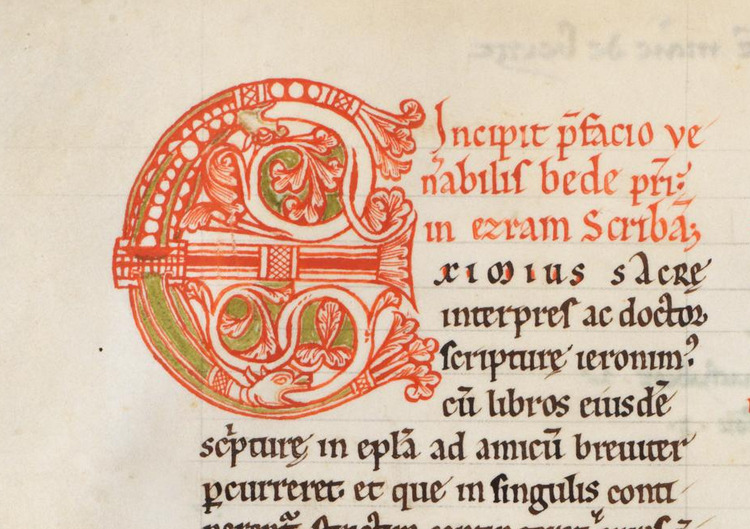 Incipit p̄facio ve
nabilis bede pr̄i:
in ezram Scribā
EXIMIUS SACRĘ
interpres ac doctor
scripturę ieronim᾽
cū libros eiusdē
sc̄pturę in epl̄a ad amicū breuiter
ꝑcurreret et que in singulis conti